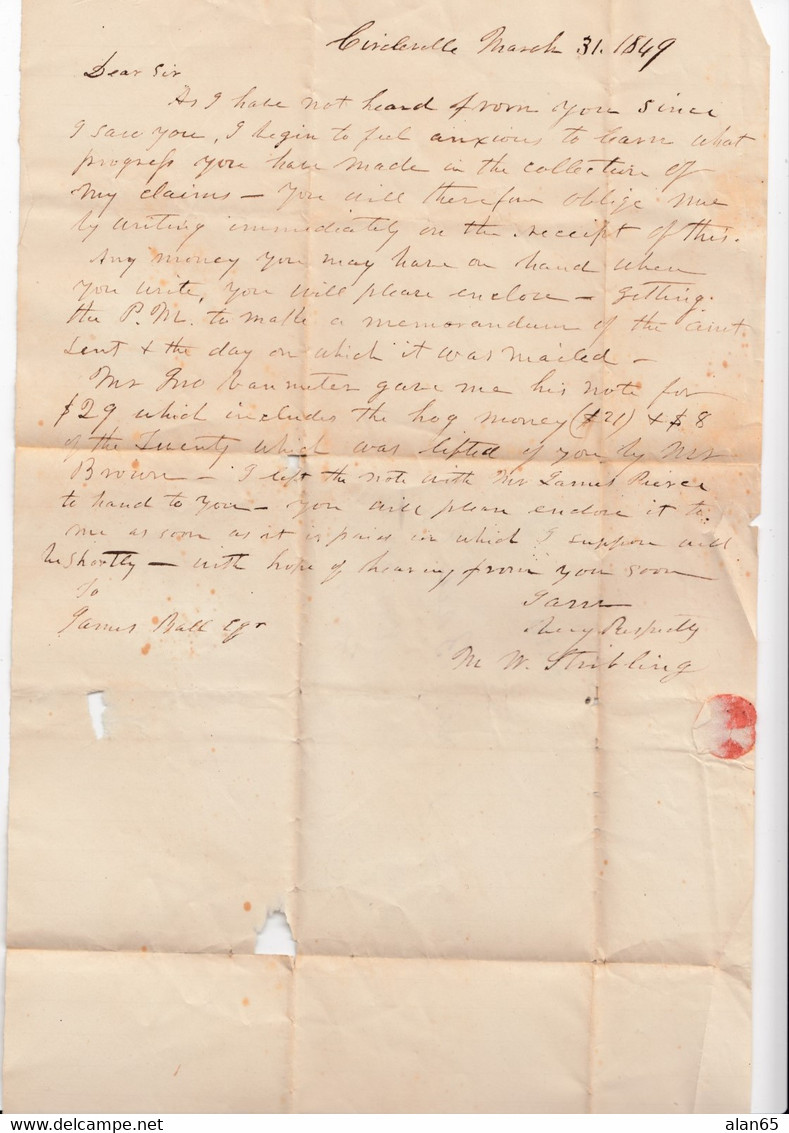 Circleville March 31. 1849
Dear Sir
As I have not heard from you since
I saw you, I begin to feel anxious to learn what
progress you have made in the collection of
my claims – You will therefore oblige me
by writing immediately on the receipt of this.
Any money you may have on hand when
you write, you will please enclose – getting
the P.M. to make a memorandum of the amt
sent & the day on which it was mailed –
Mr Jno Vanmeter gave me his note for
$29 which includes the hog money ($21) & $8
of the Twenty which was lifted of you by Mr
Brown – I left the note with Mr James Pierce
to hand to you – you will please enclose it to
me as soon as it is paid in which I suppose will
be shortly – with hope of hearing from you soon
To
I am
James Ball Esqr
Very Respectly
M W. Stribling
alan65